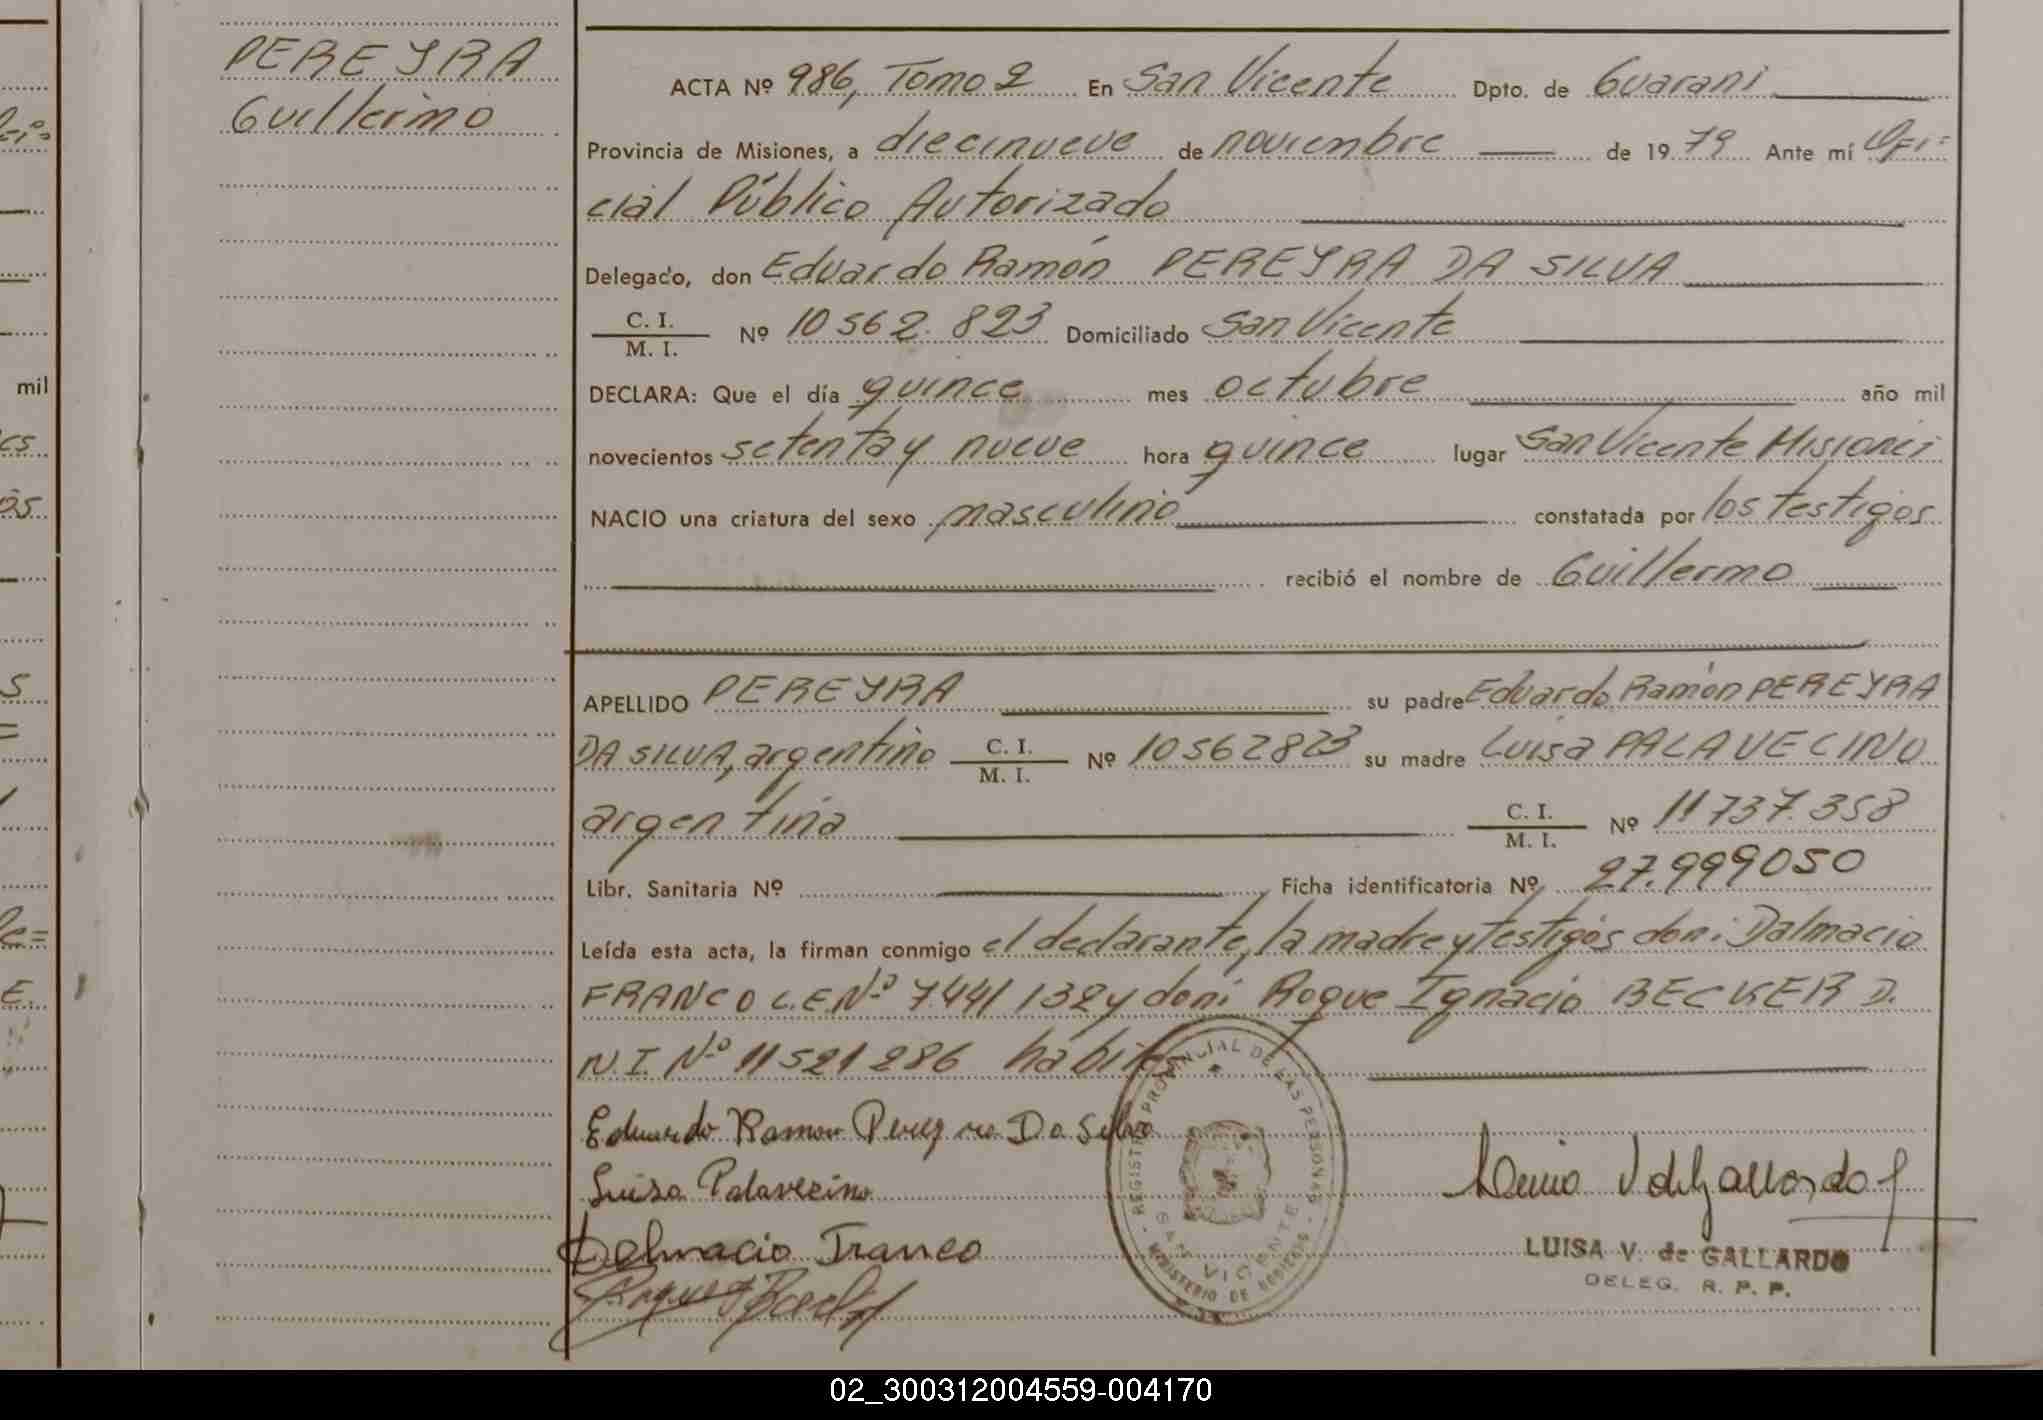 PEREYRA
Guillermo
ACTA Nº 986, Tomo 2 En San Vicente Dpto. de Guarani
Provincia de Misiones, a diecinueve de noviembre de 1979 Ante mí Ofi=
cial Público Autorizado
Delegado, don Eduardo Ramón PEREYRA DA SILVA
C. I.
M. I. Nº 10562.823 Domiciliado San Vicente
DECLARA: Que el día quince mes octubre año mil
novecientos setenta y nueve hora quince lugar San Vicente Misiones
NACIO una criatura del sexo masculino constatada por los testigos
recibió el nombre de Guillermo
APELLIDO PEREYRA su padre Eduardo Ramón PEREYRA
DA SILVA, argentino C. I. M. I. Nº 10562823 su madre Luisa PALAVECINO
argentina C. I. M. I. Nº 11737.358
Libr. Sanitaria Nº Ficha identificatoria Nº 27.999050
Leída esta acta, la firman conmigo el declarante, la madre y testigos don: Dalmacio
FRANCO L.E.Nº 7.441132 y don: Roque Ignacio BECKER D.
N.I. Nº 11521286 habiles
Eduardo Ramon Pereyra Da Silva
Luisa Palavecino
Dalmacio Franco
REGISTRO PROVINCIAL DE LAS PERSONAS
SAN VICENTE
MINISTERIO DE GOBIERNO
LUISA V. de GALLARDO
DELEG. R. P. P.
mil
02_300312004559-004170